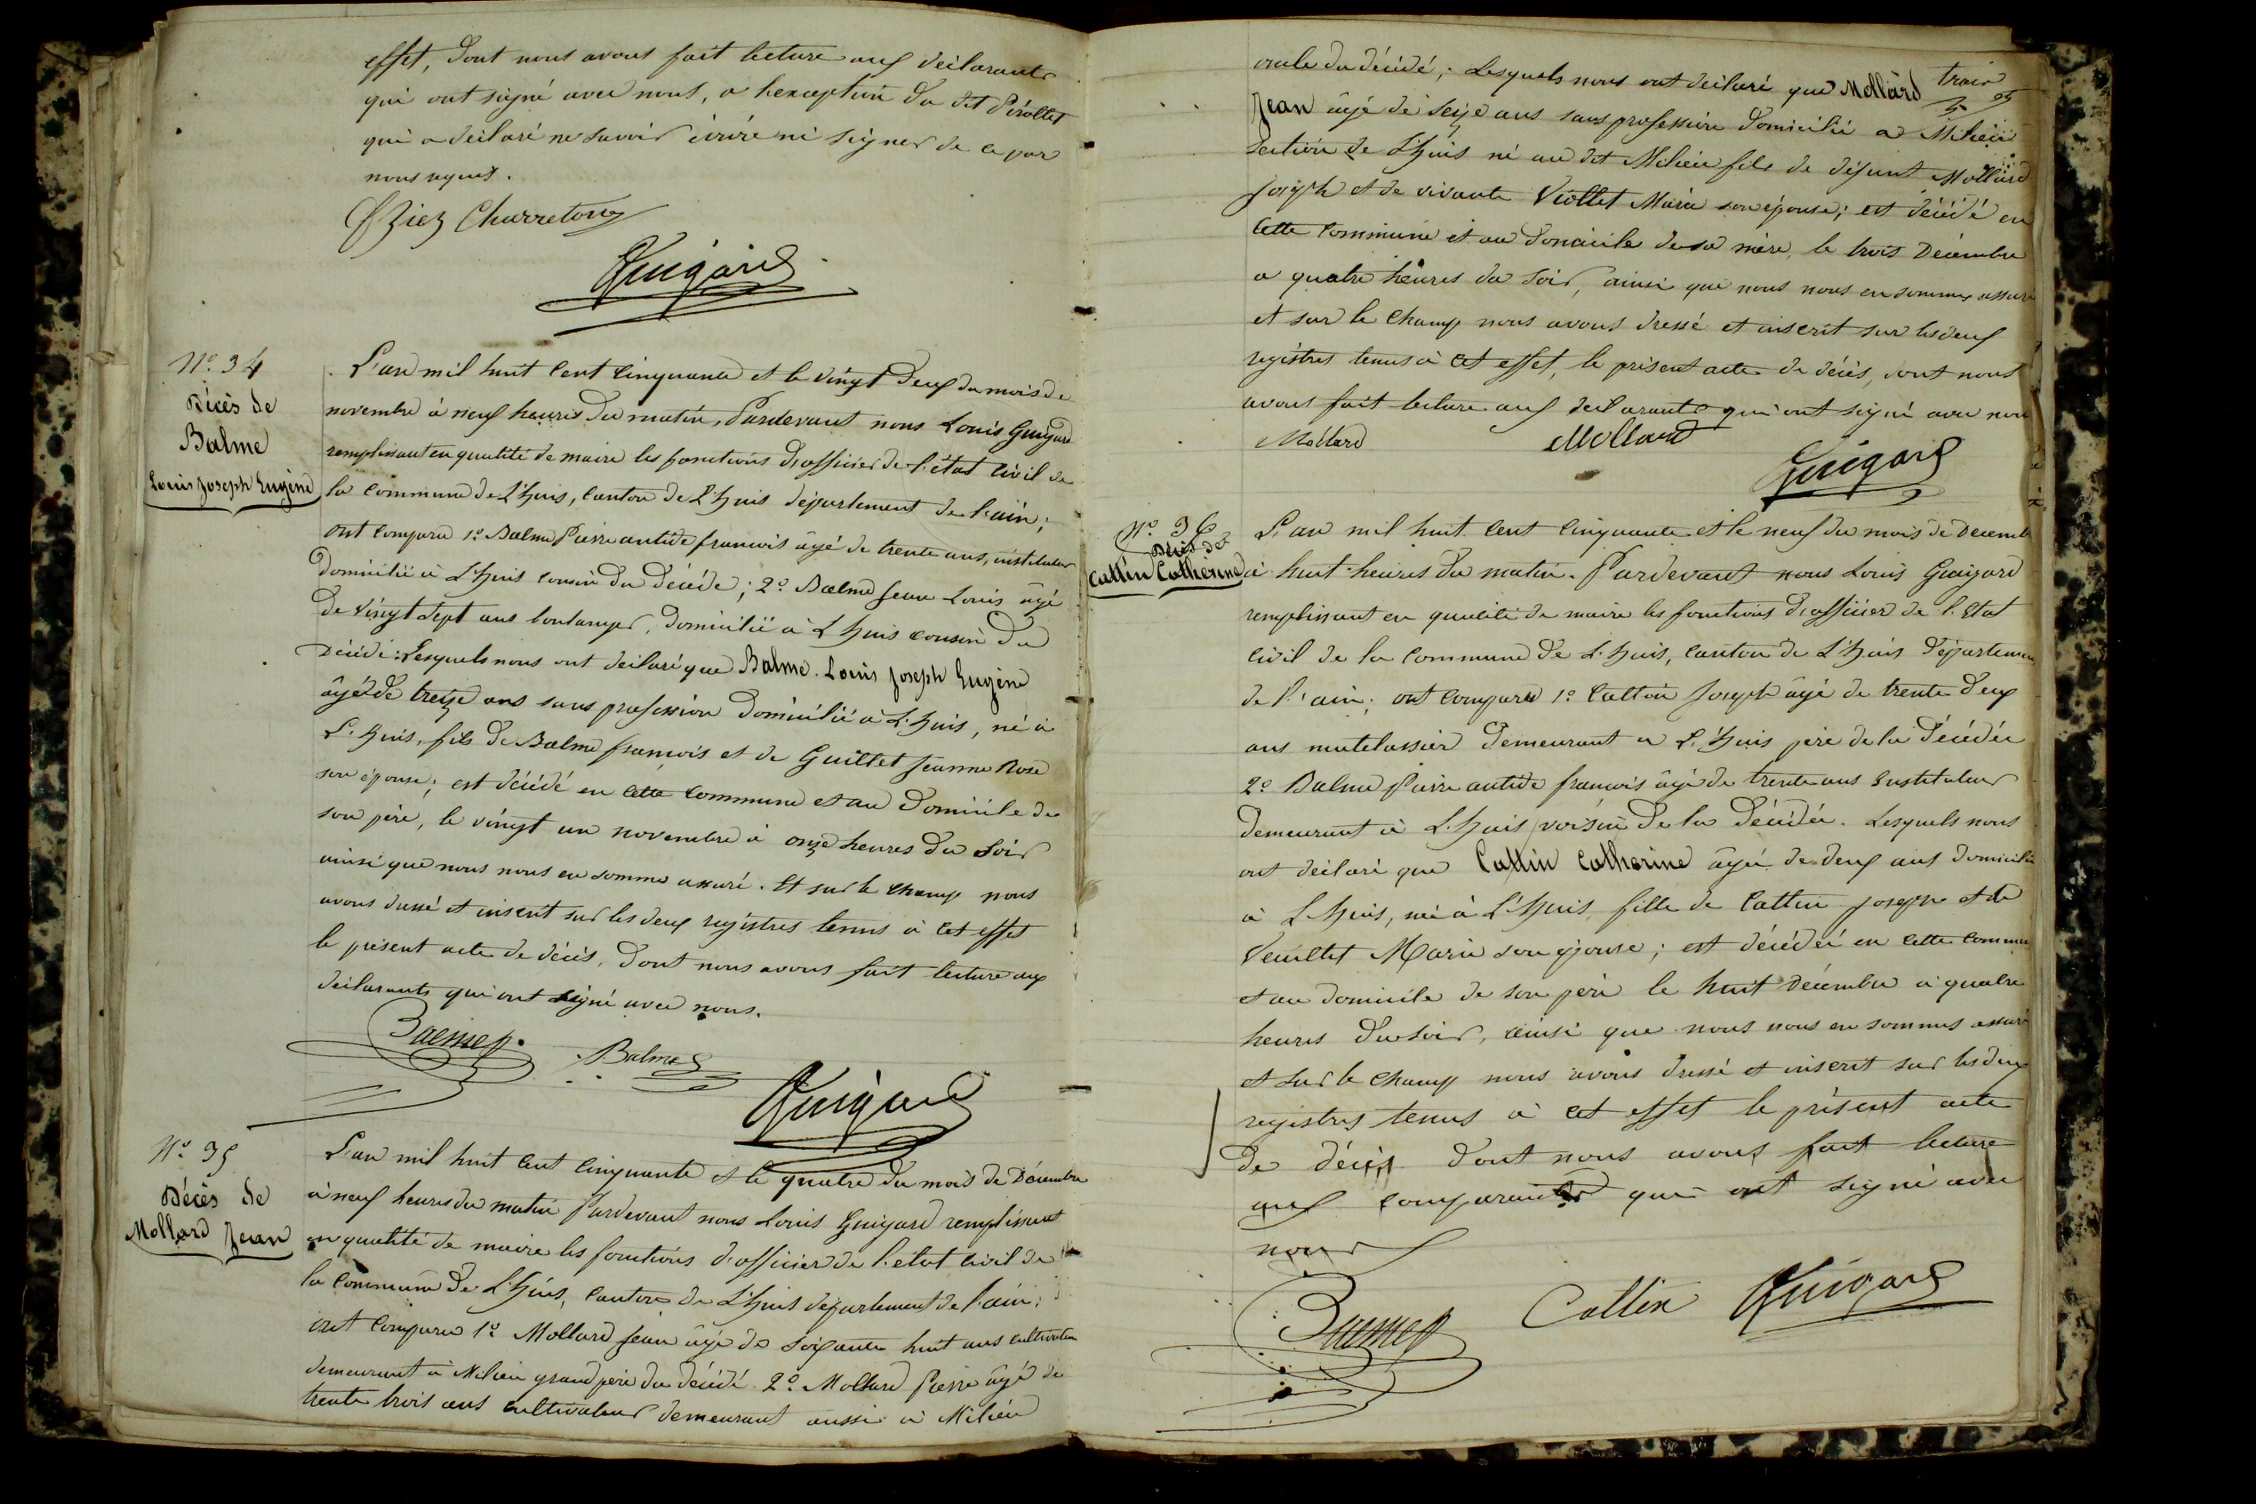 effet, dont nous avons fait lecture aux déclarants
qui ont signé avec nous, a l'exception du dit Pérollet
qui a déclaré ne savoir écrire ni signer de ce par
nous requis.
Charreton
Guigard
N° 34
Décès de
Balme
Louis Joseph Eugène
L'an mil huit cent cinquante et le vingt deux du mois de
novembre à neuf heures du matin, Pardevant nous Louis Guigard
remplissant en qualité de maire les fonctions d'officier de l'état civil de
la commune de L'huis, canton de L'huis département de l'ain;
ont comparu 1° Balme Pierre antide francois âgé de trente ans, instituteur
domicilié à L'huis cousin du décédé; 2° Balme Jean Louis âgé
de vingt sept ans boulanger, domicilié à L'huis cousin du
Décédé: Lesquels nous ont déclaré que Balme. Louis Joseph Eugène
âgé de treize ans sans profession domicilié à L'huis, né à
L'huis, fils de Balme francois et de Guillet Jeanne Rose
son épouse; est décédé en cette commune et au domicile de
son père, le vingt un novembre à onze heures du soir
ainsi que nous nous en somme assuré. Et sur le champ nous
avons dressé et inscrit sur les deux registres tenus à cet effet
le présent acte de décès, dont nous avons fait lecture aux
déclarants qui ont signé avec nous.
Balme p.
Balme
Guigard
N° 35
Décès de
Mollard Jean
L'an mil huit cent cinquante et le quatre du mois de Décembre
à neuf heures du matin Pardevant nous Louis Guigard remplissant
en qualité de maire les fonctions d'officier de l'état civil de
la commune de L'huis, canton de L'huis département de l'ain;
ont comparu 1° Mollard Jean âgé de soixante huit ans cultivateur
demeurant à Milieu grand père du décédé 2° Mollard Pierre âgé de
trente trois ans cultivateur demeurant aussi à Milieu
oncle du décédé; Lesquels nous ont déclaré que Mollard
Jean âgé de seize ans sans profession domicilié a Milieu
section de L'huis né au dit Milieu fils de défunt Mollard
Joseph et de vivante Viollet Marie son épouse; est décédé en
cette commune et au domicile de sa mère, le trois Décembre
a quatre heures du soir, ainsi que nous nous en sommes assuré
et sur le champ nous avons dressé et inscrit sur les deux
registres tenus à cet effet, le présent acte de décès, dont nous
avons fait lecture aux déclarants qui ont signé avec nous
Mollard Mollard
Guigard
N° 36
Décès de
Cattin Catherine
L'an mil huit cent cinquante et le neuf du mois de Decembre
à huit heures du matin. Pardevant nous Louis Guigard
remplissant en qualité de maire les fonctions d'officier de l'Etat
civil de la commune de L'huis, canton de L'huis département
de l'ain; ont comparu 1° Cattin Joseph âgé de trente deux
ans matelassier demeurant a L'huis père de la décédée
2° Balme Pierre antide francois âgé de trente ans Instituteur
demeurant à L'huis voisin de la décédée. Lesquels nous
ont déclaré que Cattin Catherine âgée de deux ans domiciliée
à L'huis, née à L'huis, fille de Cattin Joseph et de
Veuillet Marie son épouse; est décédée en cette commune
et au domicile de son père le huit Décembre à quatre
heures du soir, ainsi que nous nous en sommes assuré
et sur le champ nous avons dressé et inscrit sur les deux
registres tenus à cet effet le présent acte
de décès dont nous avons fait lecture
aux comparants qui ont signé avec
nous
Balme p
Cattin
Guigard